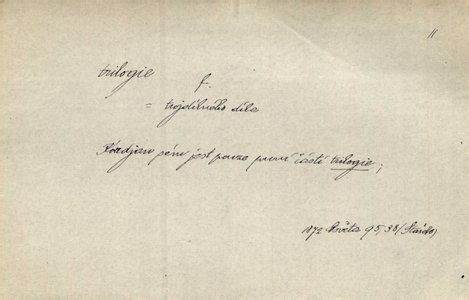 11
trilogie f.
= trojdílného díla
jest pouze první částí trilogie;
1872 Květy 95, 38 (Nár